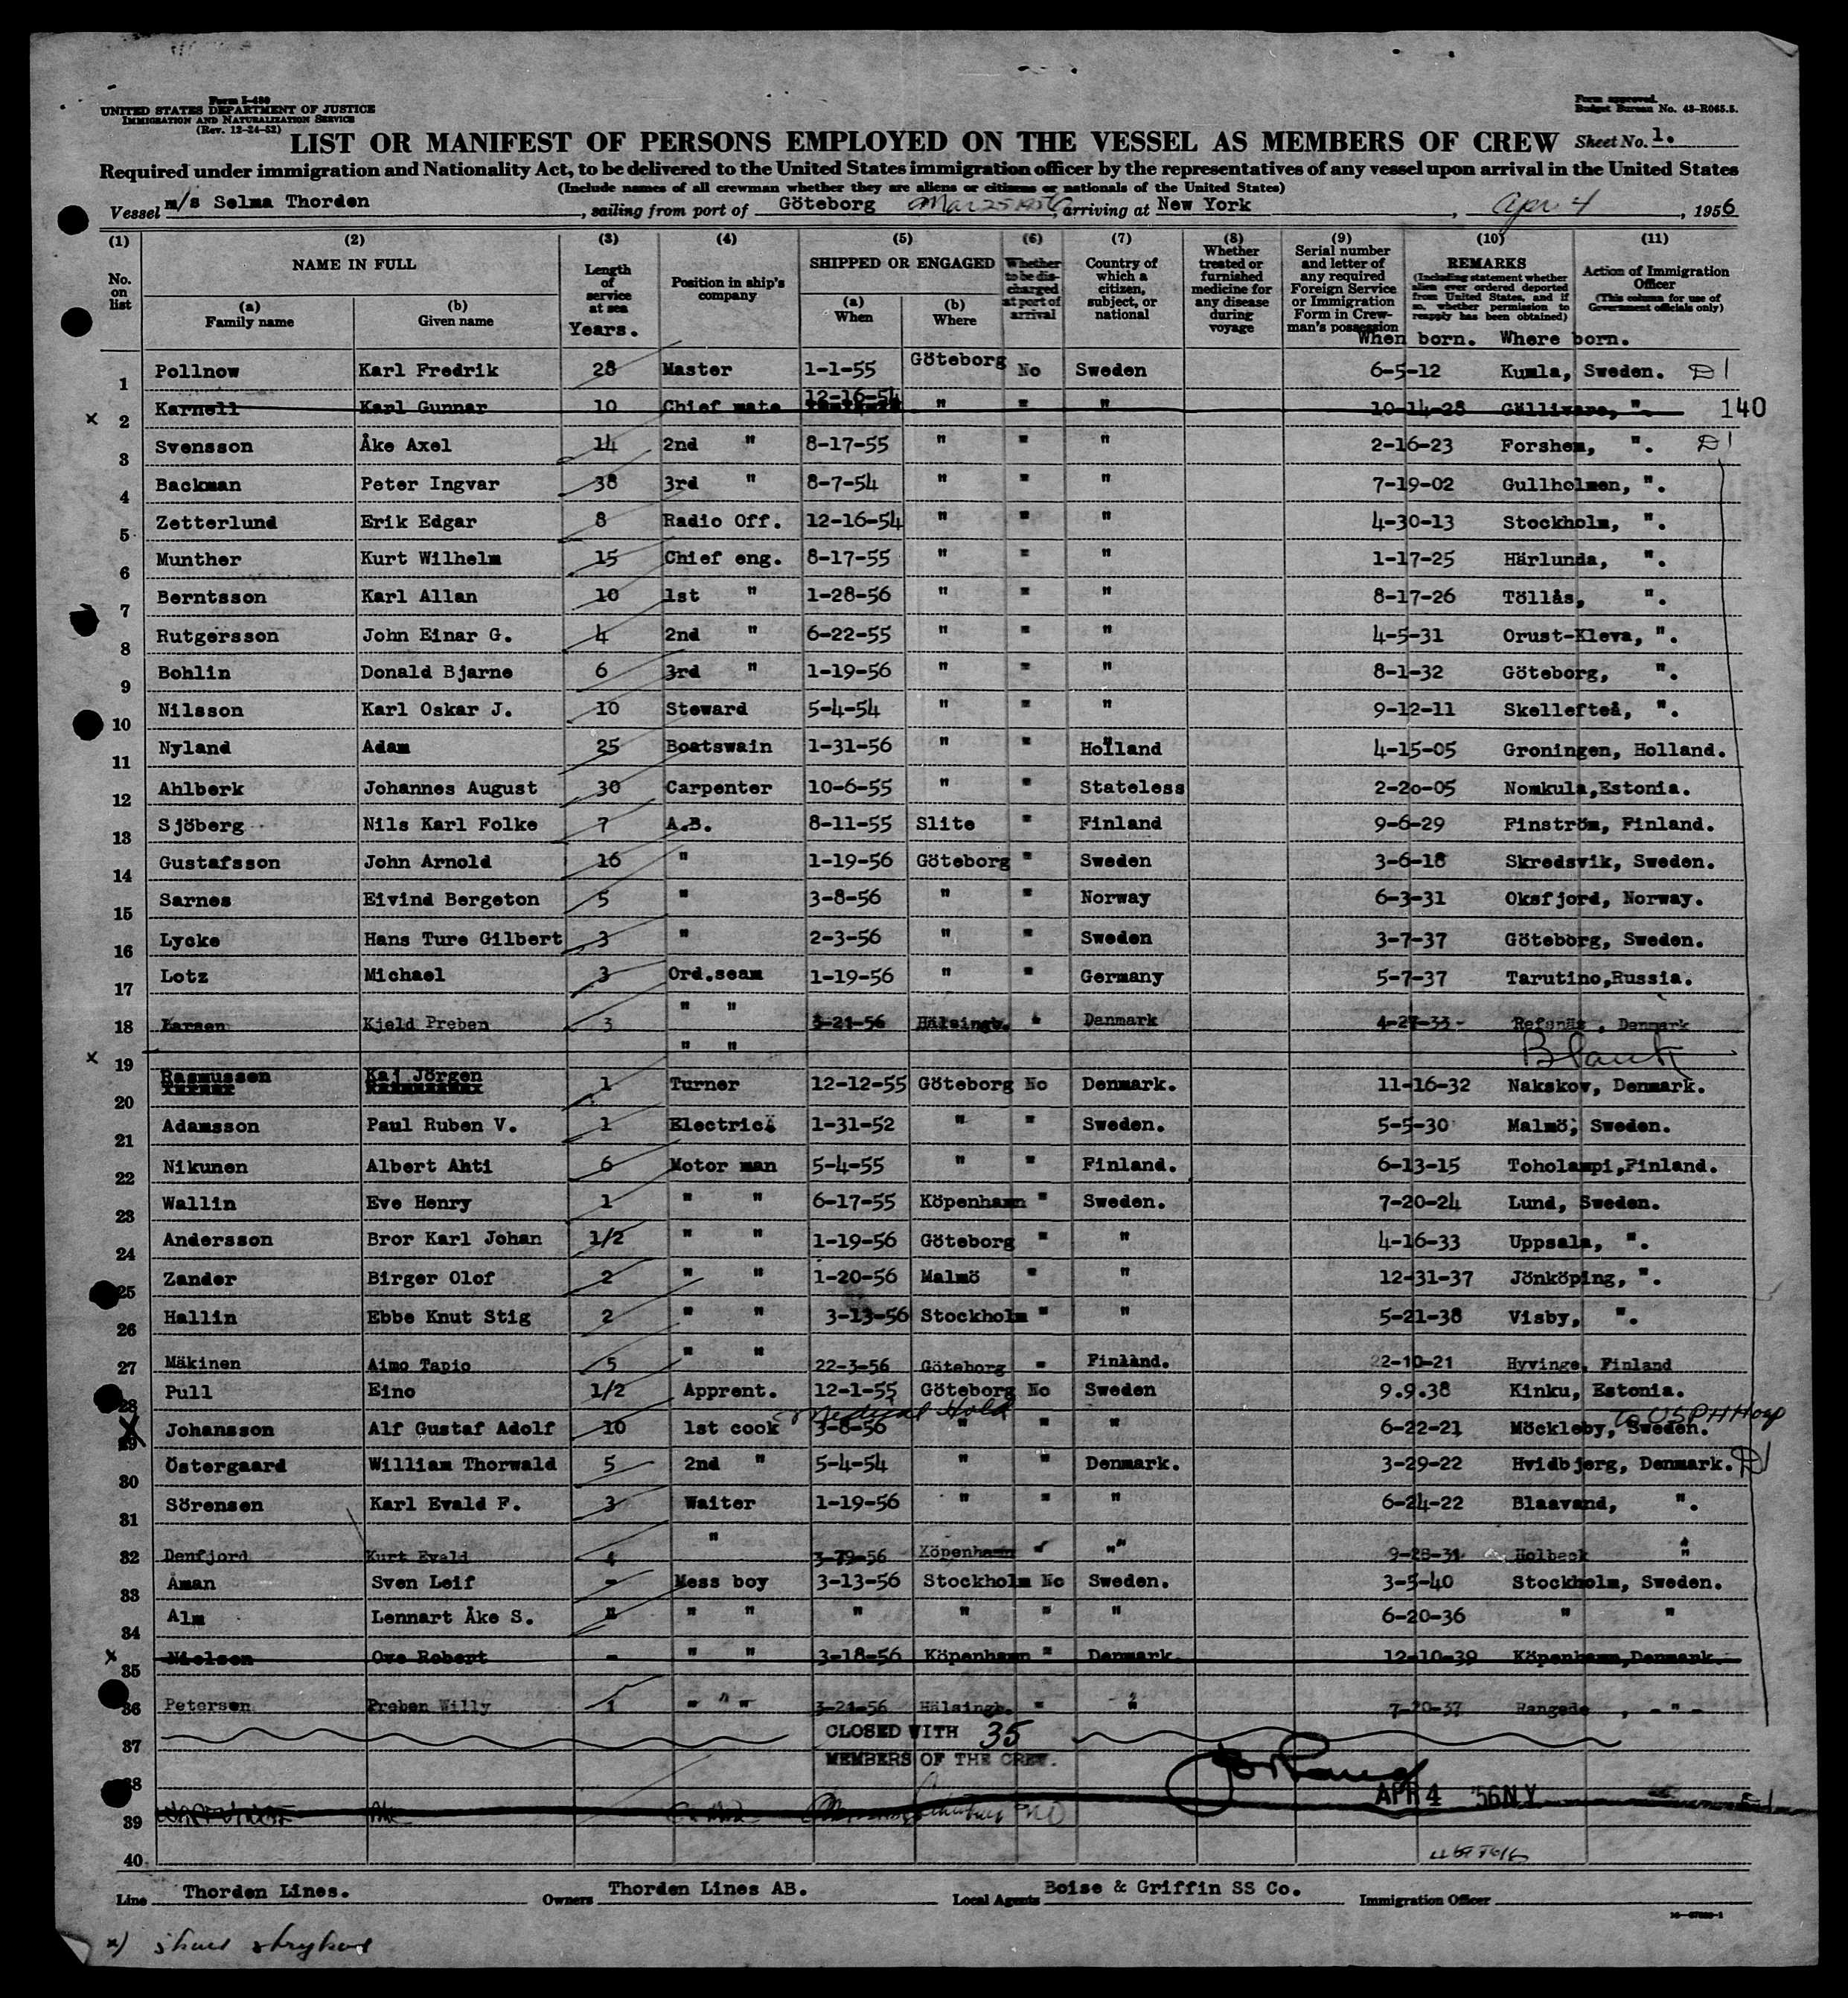 Form I-480
UNITED STATES DEPARTMENT OF JUSTICE
IMMIGRATION AND NATURALIZATION SERVICE
(Rev. 12-24-52)
Form approved.
Budget Bureau No. 43-R065.5.
LIST OR MANIFEST OF PERSONS EMPLOYED ON THE VESSEL AS MEMBERS OF CREW Sheet No. 1.
Required under immigration and Nationality Act, to be delivered to the United States immigration officer by the representatives of any vessel upon arrival in the United States
(Include names of all crewman whether they are aliens or citizens or nationals of the United States)
Vessel m/s Selma Thorden, sailing from port of Göteborg Mar 25 1956, arriving at New York, Apr 4, 1956
(1) (2) (3) (4) (5) (6) (7) (8) (9) (10) (11)
No. on list
NAME IN FULL
(a) Family name
(b) Given name
Length of service at sea
Years.
Position in ship's company
SHIPPED OR ENGAGED
(a) When
(b) Where
Whether to be discharged at port of arrival
Country of which a citizen, subject, or national
Whether treated or furnished medicine for any disease during voyage
Serial number and letter of any required Foreign Service or Immigration Form in Crewman's possession
REMARKS
(Including statement whether alien ever ordered deported from United States, and if so, whether permission to reapply has been obtained)
Action of Immigration Officer
(This column for use of Government officials only)
When born. Where born.
1 Pollnow Karl Fredrik 28 Master 1-1-55 Göteborg No Sweden 6-5-12 Kumla, Sweden. D
x 2 Karnell Karl Gunnar 10 Chief mate 12-16-54 " " " 10-14-28 Gällivare, ". 140
3 Svensson Åke Axel 14 2nd " 8-17-55 " " " 2-16-23 Forshem, ". D
4 Backman Peter Ingvar 38 3rd " 8-7-54 " " " 7-19-02 Gullholmen, ".
5 Zetterlund Erik Edgar 8 Radio Off. 12-16-54 " " " 4-30-13 Stockholm, ".
6 Munther Kurt Wilhelm 15 Chief eng. 8-17-55 " " " 1-17-25 Härlunda, ".
7 Berntsson Karl Allan 10 1st " 1-28-56 " " " 8-17-26 Töllås, ".
8 Rutgersson John Einar G. 4 2nd " 6-22-55 " " " 4-5-31 Orust-Kleva, ".
9 Bohlin Donald Bjarne 6 3rd " 1-19-56 " " " 8-1-32 Göteborg, ".
10 Nilsson Karl Oskar J. 10 Steward 5-4-54 " " " 9-12-11 Skellefteå, ".
11 Nyland Adam 25 Boatswain 1-31-56 " " Holland 4-15-05 Groningen, Holland.
12 Ahlberk Johannes August 30 Carpenter 10-6-55 " " Stateless 2-2o-05 Nomkula,Estonia.
13 Sjöberg Nils Karl Folke 7 A.B. 8-11-55 Slite " Finland 9-6-29 Finström, Finland.
14 Gustafsson John Arnold 16 " 1-19-56 Göteborg " Sweden 3-6-18 Skredsvik, Sweden.
15 Sarnes Eivind Bergeton 5 " 3-8-56 " " Norway 6-3-31 Oksfjord, Norway.
16 Lycke Hans Ture Gilbert 3 " 2-3-56 " " Sweden 3-7-37 Göteborg, Sweden.
17 Lotz Michael 3 Ord.seam 1-19-56 " " Germany 5-7-37 Tarutino,Russia.
18 Larsen Kjeld Preben 3 " " 3-21-56 Hälsingb. " Denmark 4-27-33 Refsnäs, Denmark
x 19 " " Blank
20 Rasmussen Kaj Jörgen 1 Turner 12-12-55 Göteborg No Denmark. 11-16-32 Nakskov, Denmark.
21 Adamsson Paul Ruben V. 1 Electric. 1-31-52 " " Sweden. 5-5-30 Malmö, Sweden.
22 Nikunen Albert Ahti 6 Motor man 5-4-55 " " Finland. 6-13-15 Toholampi,Finland.
23 Wallin Eve Henry 1 " " 6-17-55 Köpenhamn " Sweden. 7-20-24 Lund, Sweden.
24 Andersson Bror Karl Johan 1/2 " " 1-19-56 Göteborg " " 4-16-33 Uppsala, ".
25 Zander Birger Olof 2 " " 1-20-56 Malmö " " 12-31-37 Jönköping, ".
26 Hallin Ebbe Knut Stig 2 " " 3-13-56 Stockholm " " 5-21-38 Visby, ".
27 Mäkinen Aimo Tapio 5 " " 22-3-56 Göteborg " Finland. 22-10-21 Hyvinge, Finland
28 Pull Eino 1/2 Apprent. 12-1-55 Göteborg No Sweden 9.9.38 Kinku, Estonia.
Medical Hold to USPH Hosp
X 29 Johansson Alf Gustaf Adolf 10 1st cook 3-8-56 " " " 6-22-21 Möckleby, Sweden.
30 Östergaard William Thorwald 5 2nd " 5-4-54 " " Denmark. 3-29-22 Hvidbjerg, Denmark. D
31 Sörensen Karl Evald F. 3 Waiter 1-19-56 " " " 6-24-22 Blaavand, ".
32 Denfjord Kurt Evald 4 " Köpenhamn " " 9-28-31 Holbeck "
33 Åman Sven Leif - Mess boy 3-13-56 Stockholm No Sweden. 3-5-40 Stockholm, Sweden.
34 Alm Lennart Åke S. " " " " " " " 6-20-36 " "
x 35 Nielsen Ove Robert - " " 3-18-56 Köpenhamn " Denmark. 12-10-39 Köpenhamn,Denmark.
36 Petersen Preben Willy 1 " " " 3-21-56 Hälsingb. " " 7-20-37 Rangede , - " -
37 CLOSED WITH 35
MEMBERS OF THE CREW.
38 APR 4 '56 N.Y.
39
40
Line Thorden Lines. Owners Thorden Lines AB. Local Agents Boise & Griffin SS Co. Immigration Officer
x)